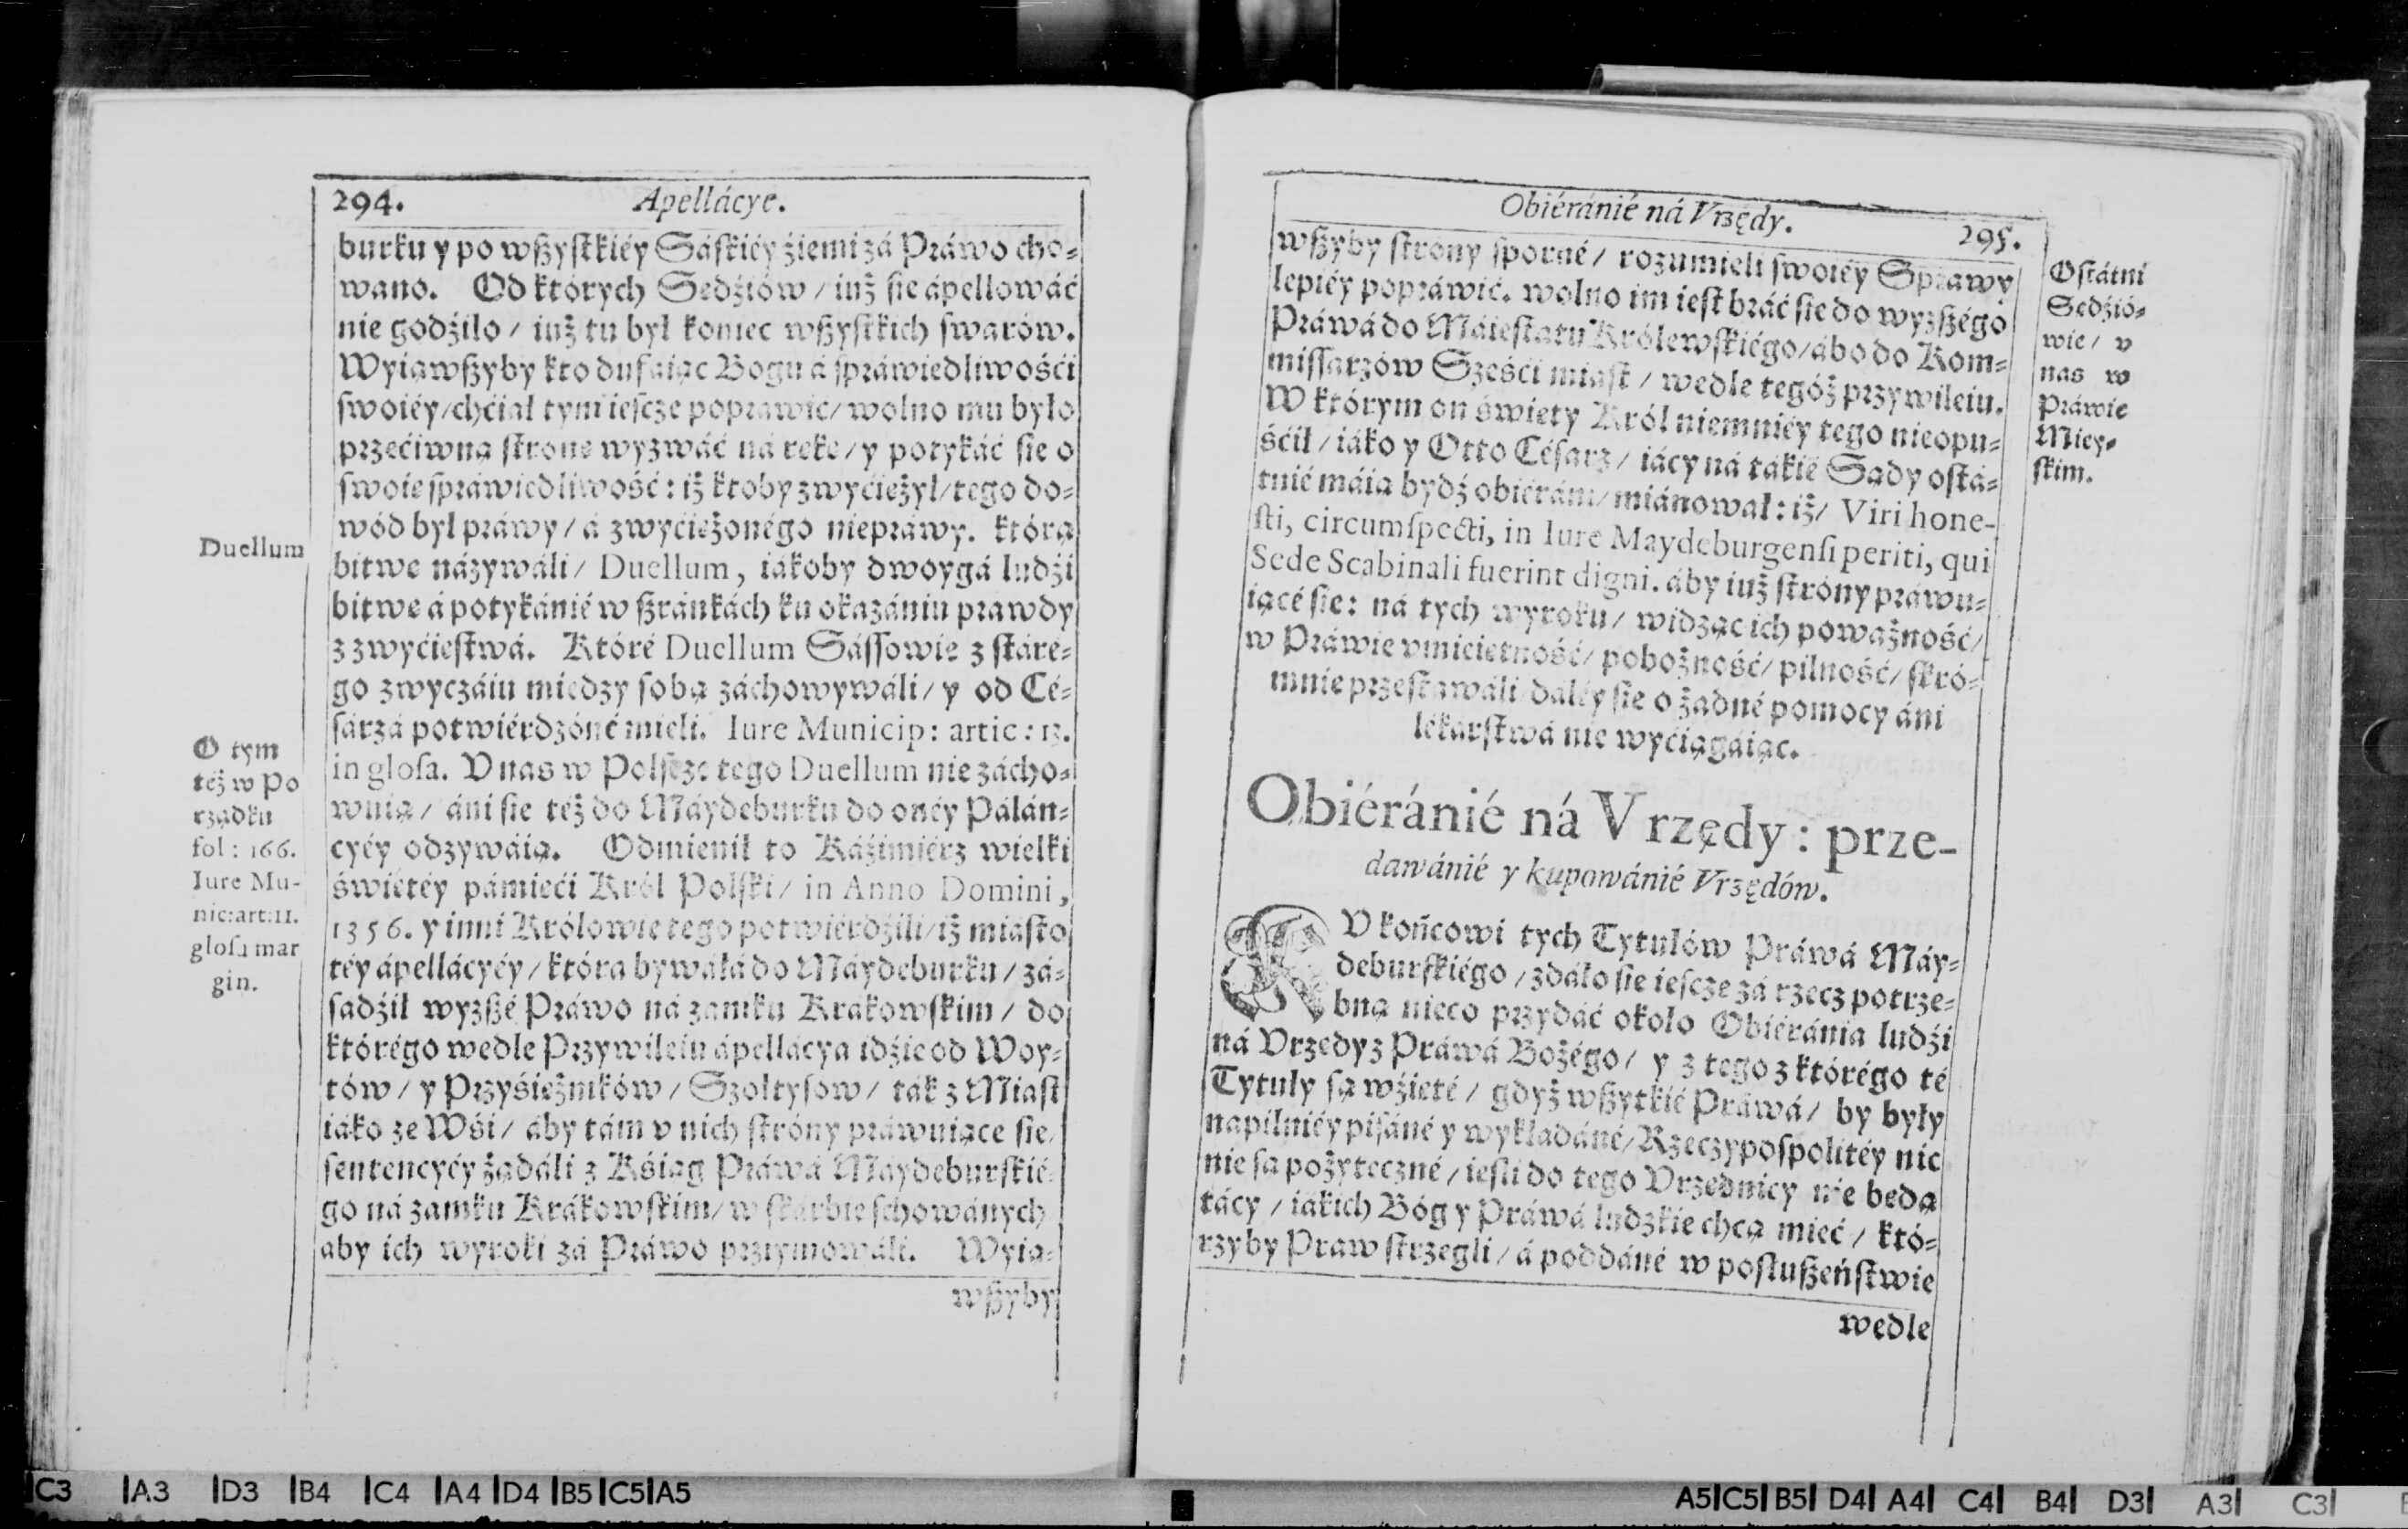 294. Apellácye.
burku y po wſzyſtkiéy Sáſkiéy źiemi zá Práwo cho-
wano. Od których Sedźiów / iuż ſie ápellowáć
nie godźiło / iuż tu był koniec wſzyſtkich ſwarów.
Wyiąwſzyby kto dufáiąc Bogu á ſpráwiedliwośći
ſwoiéy / chćiał tym ieſcze popráwić / wolno mu było
przećiwną ſtrone wyzwáć ná reke / y potykáć ſie o
ſwoie ſpráwiedliwość: iż ktoby zwyćieżył / tego do-
wód był práwy / á zwyćieżonégo nieprawy. którą
bitwe názywáli / Duellum, iákoby dwoygá ludźi
bitwe á potykánié w ſzránkách ku okazániu prawdy
z zwyćieſtwá. Któré Duellum Sáſſowie z ſtáré-
go zwyczáiu miedzy ſobą záchowywáli / y od Cé-
ſárzá potwiérdzóné mieli. Iure Municip: artic: 13.
in gloſa. V nas w Polſzcze tego Duellum nie zácho-
wuią / áni ſie też do Máydeburku do onéy Pálán-
cyéy odzywáią. Odmienił to Káźimiérz wielki
świétéy pámieći Król Polſki / in Anno Domini,
1356. y inni Królowie tego potwiérdźili / iż miáſto
téy ápellácyéy / która bywáłá do Máydeburku / zá-
ſadźił wyzſzé Práwo ná zamku Krákowſkim / do
którégo wedle Przywileiu ápellácya idźie od Woy-
tów / y Przyśieżników / Szołtyſow / ták z Miaſt
iáko ze Wśi / áby tám v nich ſtróny práwuiące ſie /
ſentencyéy żądáli z Kśiąg Práwá Máydeburſkié-
go ná zamku Krákowſkim / w ſkárbie ſchowánych
aby ich wyroki zá Práwo przymowáli. Wyią-
wſzyby
Duellum
O tym
też w Po
rządku
fol: 166.
Iure Mu-
nic:art:11.
gloſa mar
gin.
Obiéránié ná Vrzędy. 295.
wſzyby ſtrony ſporné / rozumieli ſwoiéy Sprawy
lepiéy popráwić. wolno im ieſt bráć ſie do wyzſzégo
Práwá do Máieſtatu Królewſkiégo / ábo do Kom-
miſſarzów Sześći miaſt / wedle tegóż przywileiu.
W którym on świety Król niemniéy tego nieopu-
śćił / iáko y Otto Céſarz / iácy ná tákié Sądy oſtá-
tnié máią bydź obiéráni / miánował: iż / Viri hone-
ſti, circumſpecti, in Iure Maydeburgenſi periti, qui
Sede Scabinali fuerint digni. áby iuż ſtróny práwu-
iącé ſie: ná tych wyroku / widząc ich poważność /
w Práwie vmieietność / pobożność / pilność / ſkró-
mnie przeſtawáli daléy ſie o żadné pomocy áni
lékárſtwá nie wyćiągáiąc.
Obiéránié ná Vrzędy: prze-
dawánié y kupowánié Vrzędów.
KV końcowi tych Tytułów Práwá Máy-
deburſkiégo / zdáło ſie ieſcze zá rzecz potrze-
bną nieco przydáć około Obiéránia ludźi
ná Vrzedy z Práwá Bożégo / y z tego z którégo té
Tytuły ſą wźieté / gdyż wſzytkié Práwá / by były
napilniéy piſáné y wykładáné / Rzeczypoſpolitéy nic
nie ſą pożyteczné / ieſli do tego Vrzednicy nie będą
tácy / iákich Bóg y Práwá ludzkie chcą mieć / któ-
rzyby Praw ſtrzegli / á poddáné w poſłuſzeńſtwie
wedle
Oſtátni
Sedźió-
wie / v
nas w
Práwie
Miey-
ſkim.
C3 A3 D3 B4 C4 A4 D4 B5 C5 A5
A5 C5 B5 D4 A4 C4 B4 D3 A3 C3